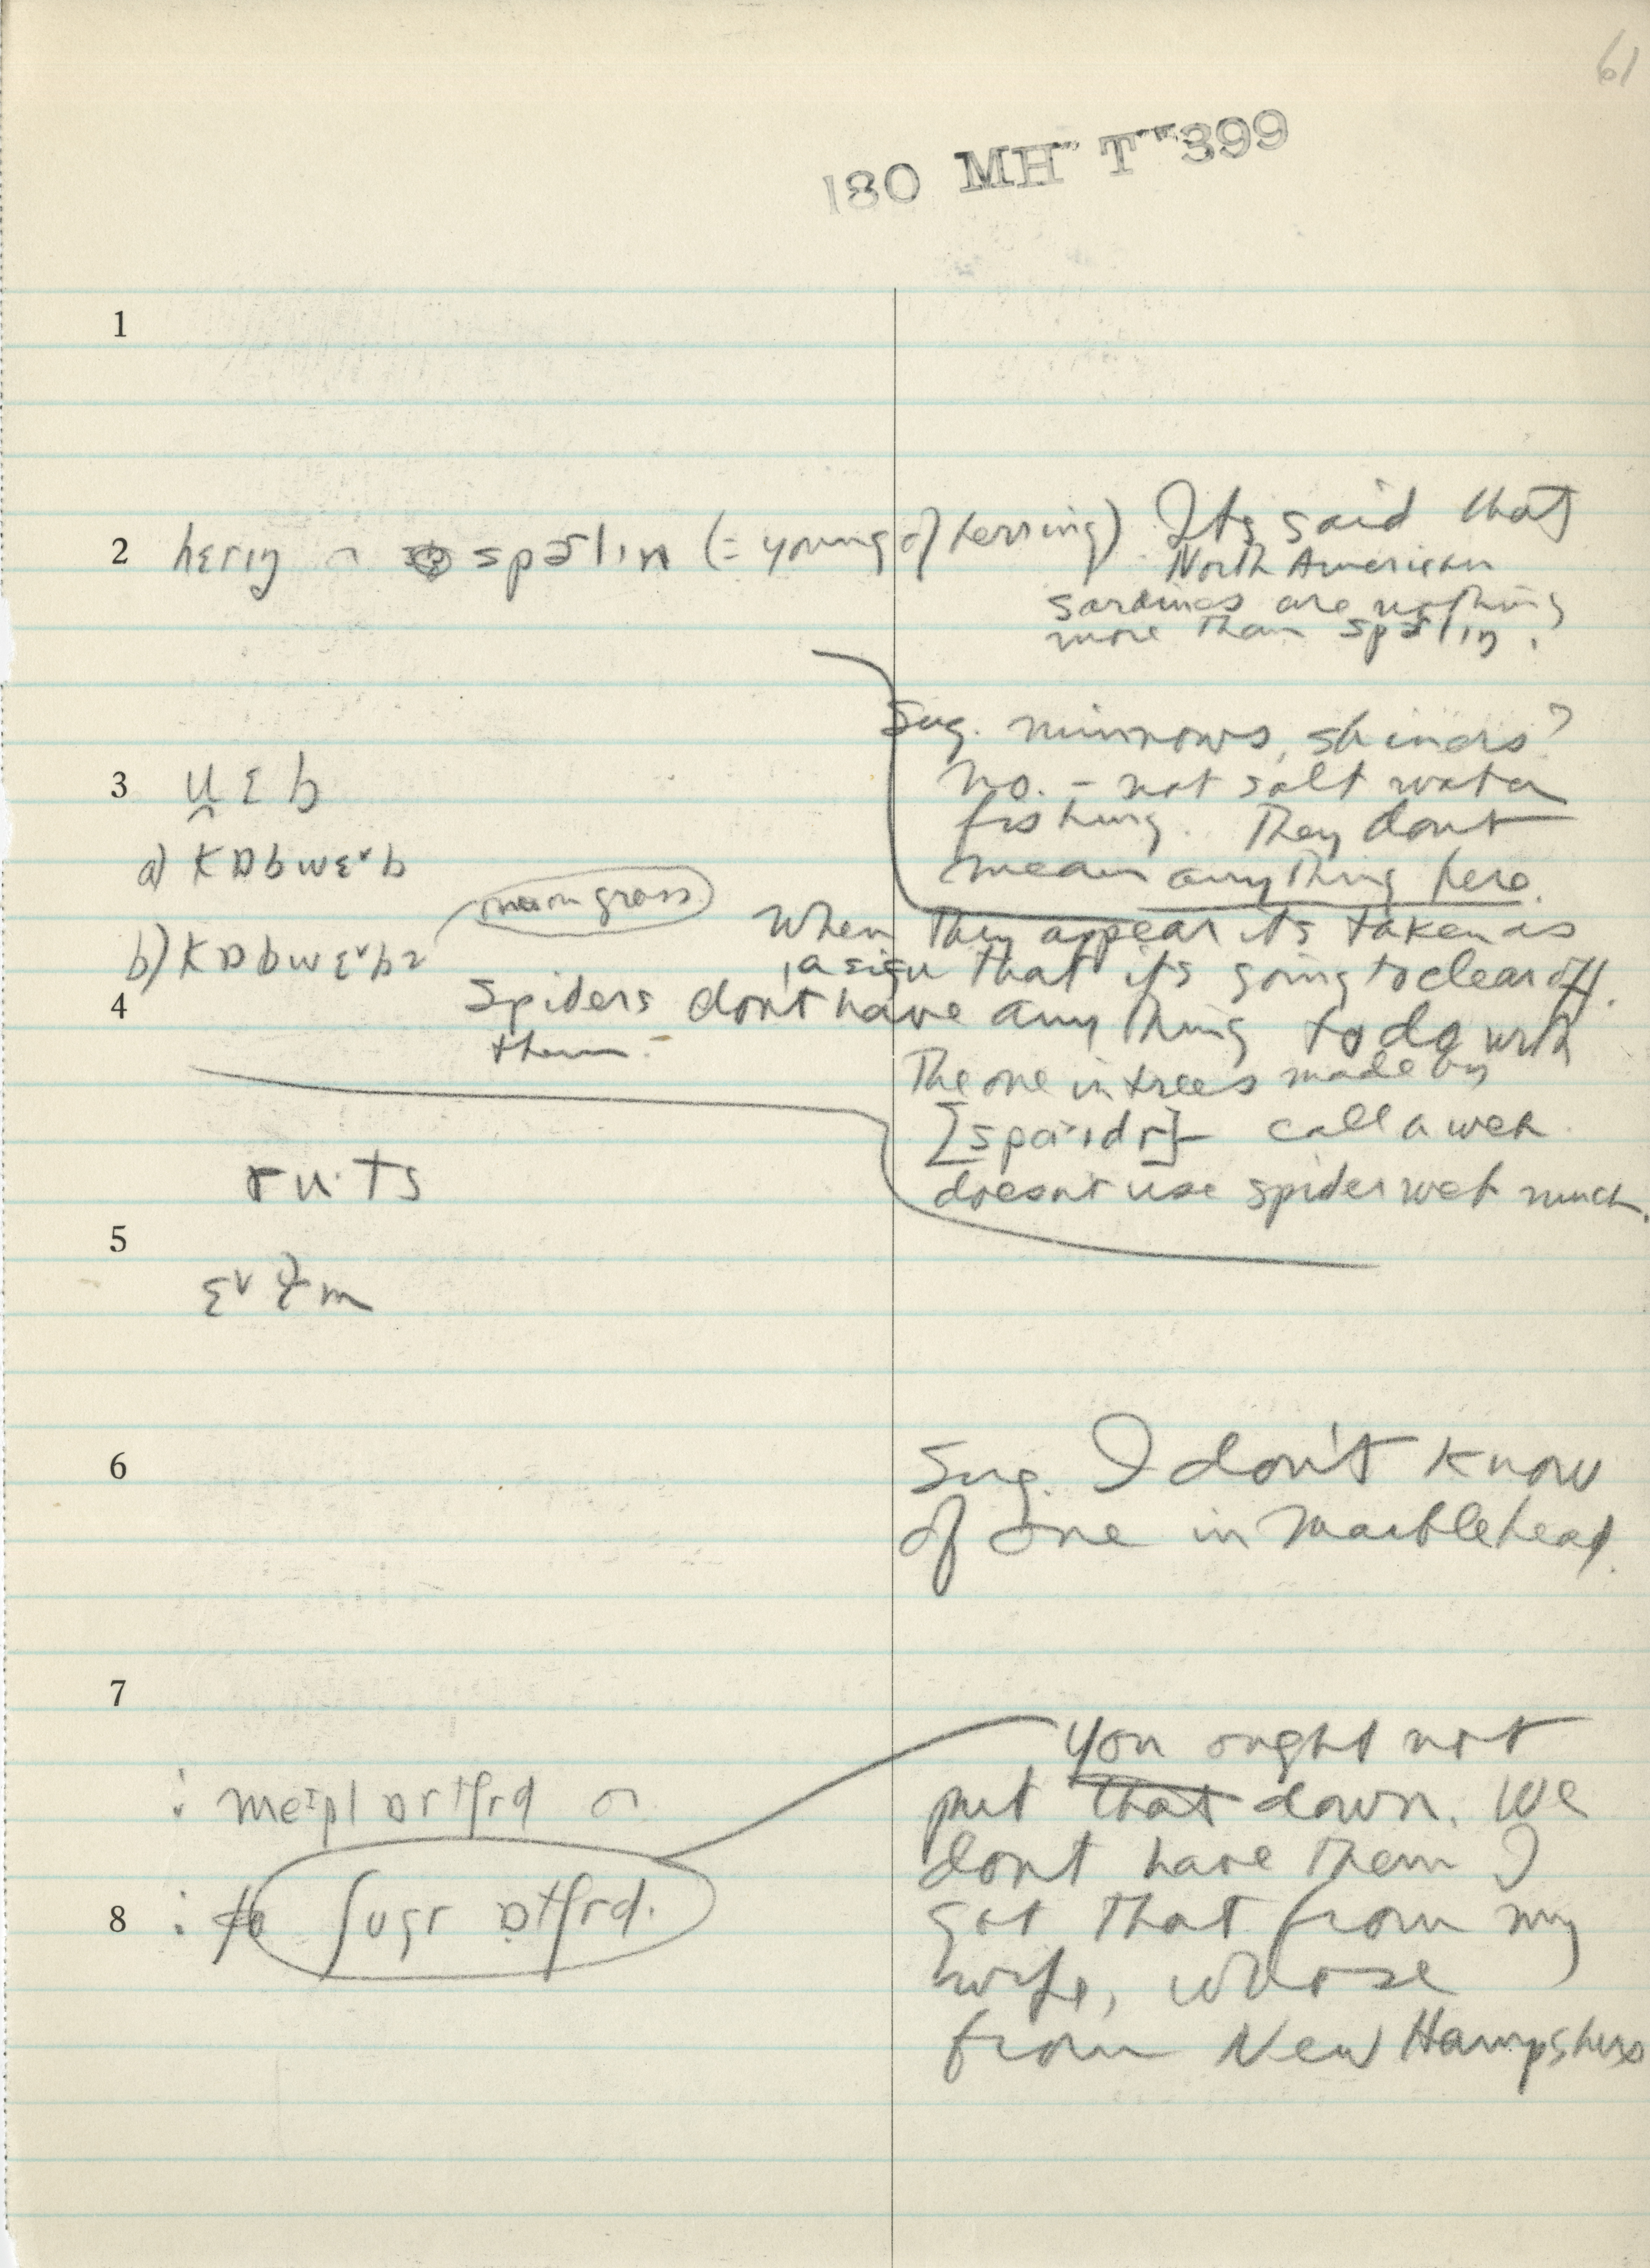 61
180 MH T 399
1
2 hɛrɪŋ ∩ spɜ̄lɪn (= young of herring) Its said that
North American
sardines are nothing
more than spɜ̄lɪŋ.
Sug. minnows, shiners?
3 u̯ɛb
no. – not salt water
fishing. They dont
a) kɒbwɛ˅b
mean anything here.
on grass
When they appear its taken as
b) kɒbwɛ˅bz
a sign that it's going to clear off.
4 Spiders don't have anything to do with
them.
The one in trees made by
[spɑɪdr] call a web.
ru·ts
doesn't use spider web much.
5
ɛ˅ɫm
6 Sug. I don't know
of one in Marblehead.
7
You ought not
: meɪpl ɒrtʃrd ∩
put that down. We
dont have them I
8 : ʃugr ɒtʃrd.
got that from my
wife, whose
from New Hampshire